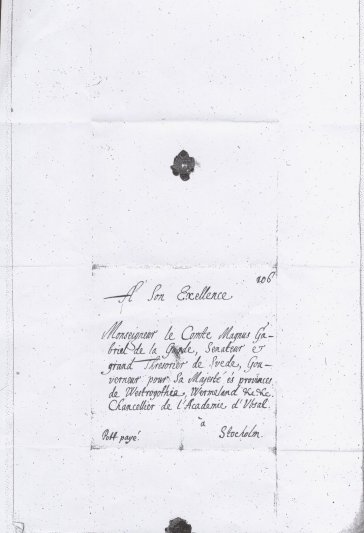 106
A Son Excellence
Monseigneur le Comte Magnus Ga-
briel de la Garde, Senateur &
grand Thresorier de Svede, Gou-
verneur pour Sa Majesté és provinces
de Westrogothia, Wermeland &c &c.
Chancellier de l'Academie d'Vbsal.
à
Post payé.
Stocholm.